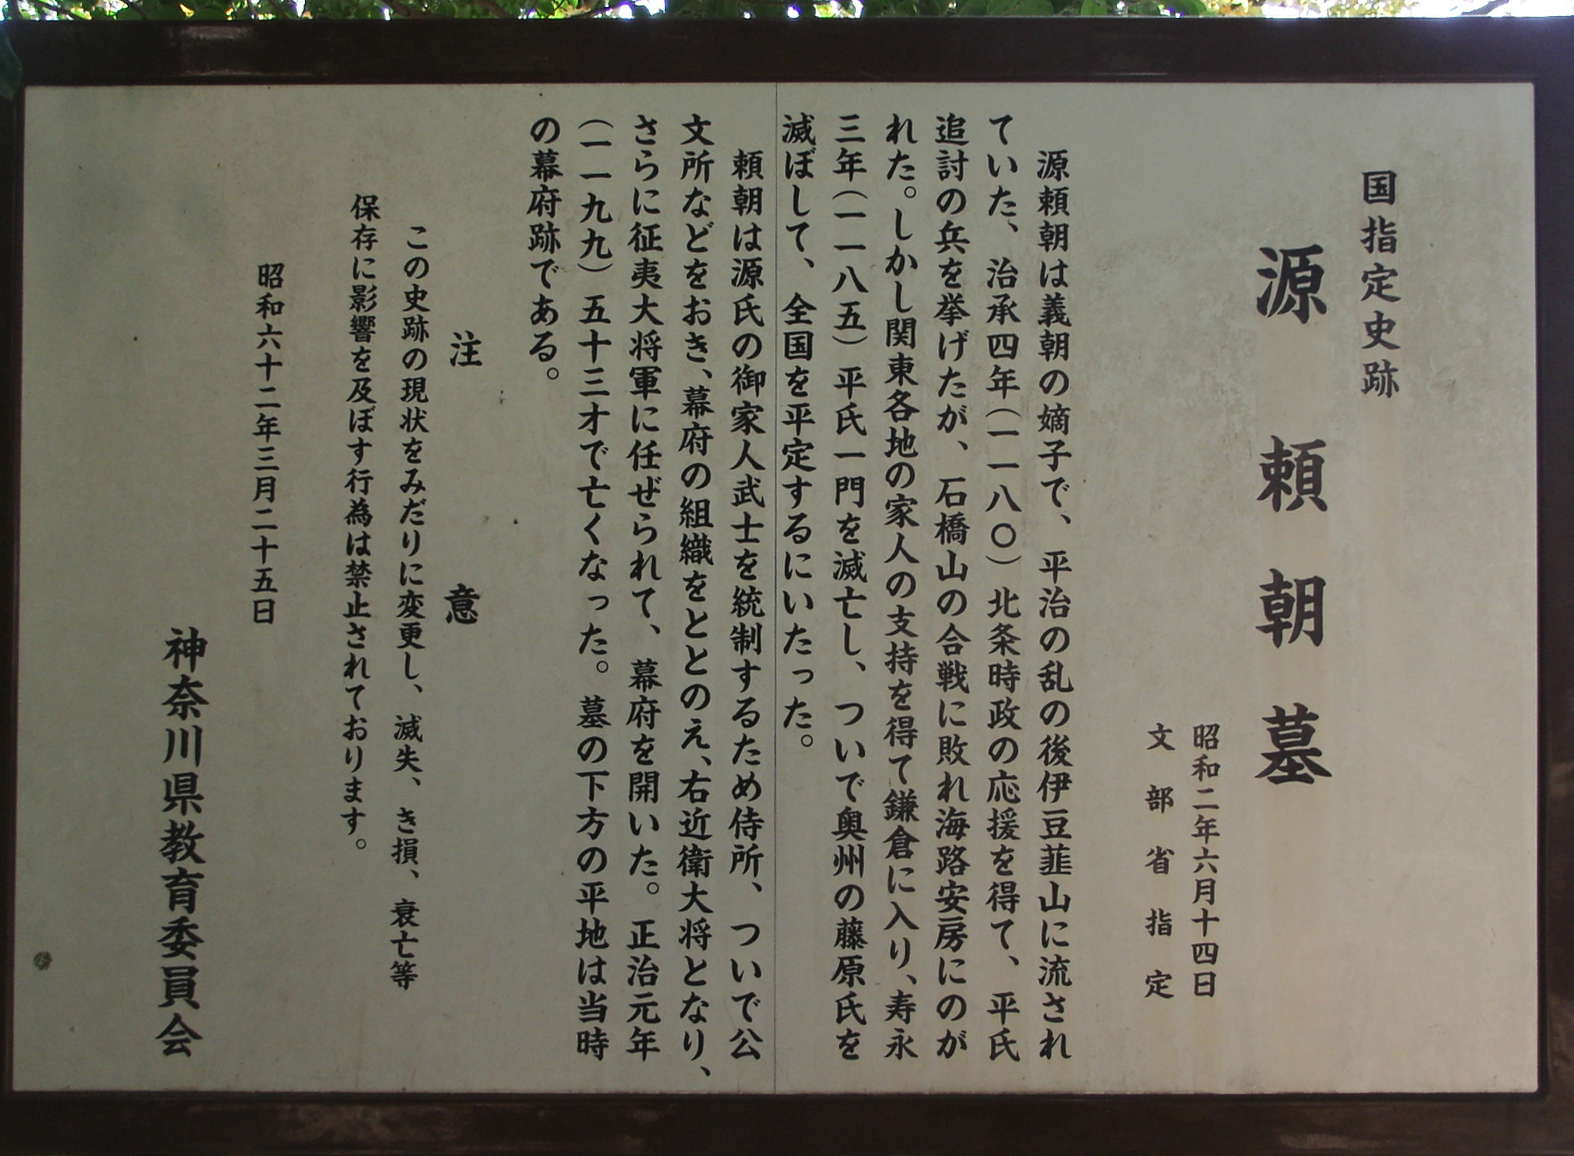 国指定史跡
源頼朝墓
昭和二年六月十四日
文部省指定
源頼朝は義朝の嫡子で、平治の乱の後伊豆韮山に流され
ていた、治承四年(一一八〇)北条時政の応援を得て、平氏
追討の兵を挙げたが、石橋山の合戦に敗れ海路安房にのが
れた。しかし関東各地の家人の支持を得て鎌倉に入り、寿永
三年(一一八五)平氏一門を滅亡し、ついで奥州の藤原氏を
滅ぼして、全国を平定するにいたった。
頼朝は源氏の御家人武士を統制するため侍所、ついで公
文所などをおき、幕府の組織をととのえ、右近衛大将となり、
さらに征夷大将軍に任ぜられて、幕府を開いた。正治元年
(一一九九)五十三才で亡くなった。墓の下方の平地は当時
の幕府跡である。
注意
この史跡の現状をみだりに変更し、滅失、き損、衰亡等
保存に影響を及ぼす行為は禁止されております。
昭和六十二年三月二十五日
神奈川県教育委員会